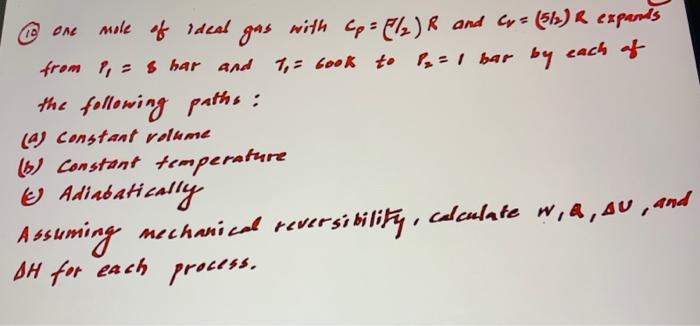 (10) one mole of ideal gas with Cp = (7/2) R and Cv = (5/2) R expands
from P₁ = 8 bar and T₁ = 600K to P₂ = 1 bar by each of
the following paths :
(a) Constant volume
(b) Constant temperature
(c) Adiabatically
Assuming mechanical reversibility, calculate W, Q, ΔU, and
ΔH for each process.